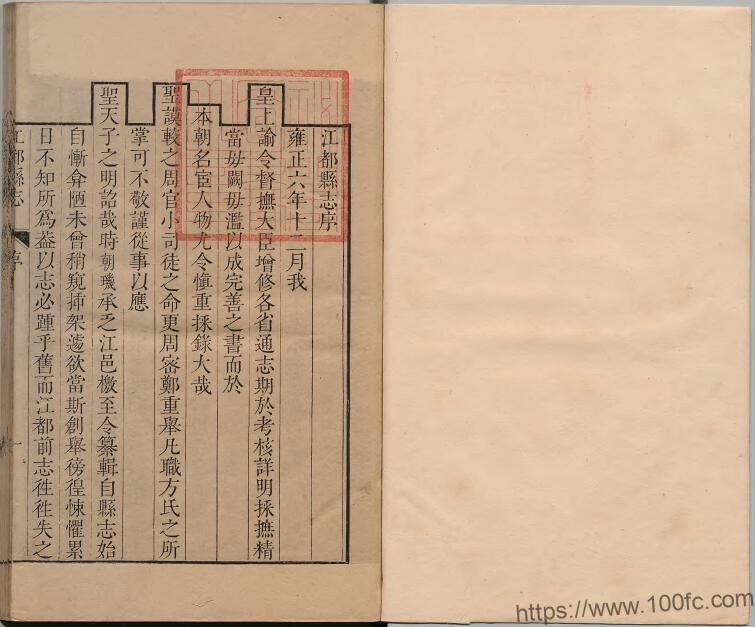 江都縣志序
雍正六年十二月我
皇上諭令督撫大臣增修各省通志期於考核詳明採摭精
當毋闕毋濫以成完善之書而於
本朝名宦人物尤令愼重採錄大哉
聖謨較之周官小司徒之命更周密鄭重舉凡職方氏之所
掌可不敬謹從事以應
聖天子之明詔哉時朝璣承乏江邑檄至令纂輯自縣志始
自慚弇陋未曾稍窺揷架遽欲當斯創舉徬徨悚懼累
日不知所爲葢以志必踵乎舊而江都前志徃徃失之
江都縣志 序 一
https://www.100fc.com